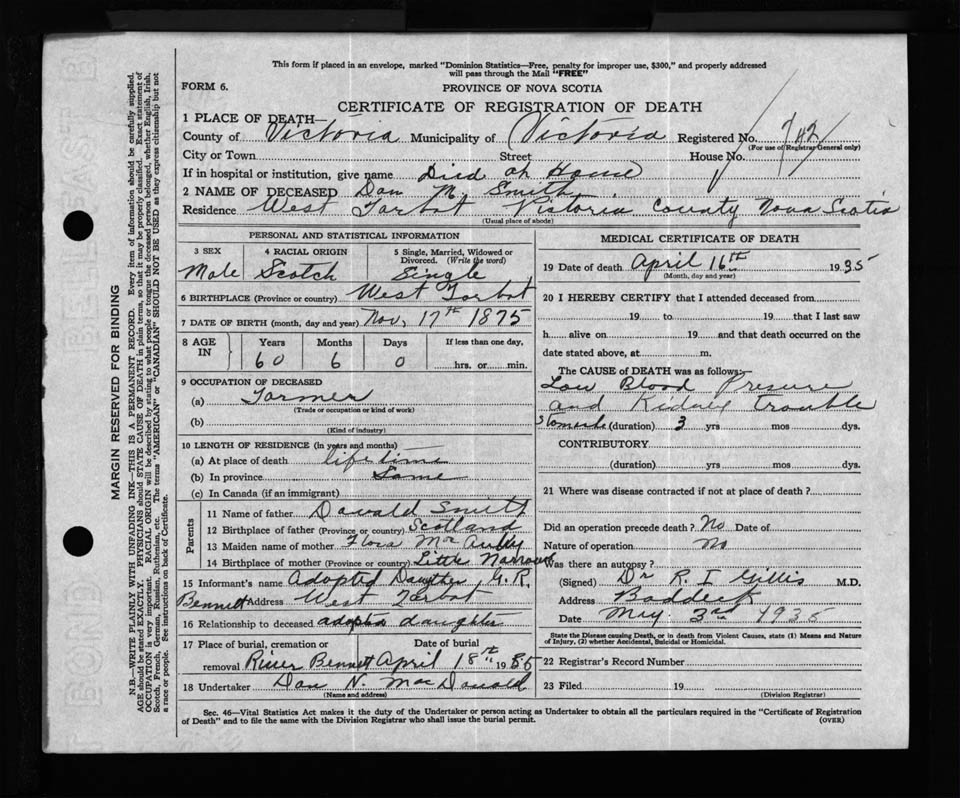 This form if placed in an envelope, marked "Dominion Statistics—Free, penalty for improper use, $300," and properly addressed
will pass through the Mail "FREE"
FORM 6.
PROVINCE OF NOVA SCOTIA
CERTIFICATE OF REGISTRATION OF DEATH
1 PLACE OF DEATH—
County of Victoria Municipality of Victoria Registered No. 742
(For use of Registrar General only)
City or Town Street House No.
If in hospital or institution, give name Died at Home
2 NAME OF DECEASED Dan M. Smith
Residence West Tarbot Victoria County Nova Scotia
(Usual place of abode)
PERSONAL AND STATISTICAL INFORMATION
3 SEX 4 RACIAL ORIGIN 5 Single, Married, Widowed or
Divorced. (Write the word)
Male Scotch Single
6 BIRTHPLACE (Province or country) West Tarbot
7 DATE OF BIRTH (month, day and year) Nov, 17th 1875
8 AGE IN Years Months Days If less than one day,
60 6 0 hrs. or min.
9 OCCUPATION OF DECEASED
(a) Farmer
(Trade or occupation or kind of work)
(b)
(Kind of industry)
10 LENGTH OF RESIDENCE (in years and months)
(a) At place of death life time
(b) In province Same
(c) In Canada (if an immigrant)
Parents
11 Name of father Donald Smith
12 Birthplace of father (Province or country) Scotland
13 Maiden name of mother Flora MacAulay
14 Birthplace of mother (Province or country) Little Narrows
15 Informant's name Adopted Daughter, G. R.
Bennett Address West Tarbot
16 Relationship to deceased adopted daughter
17 Place of burial, cremation or Date of burial
removal River Bennett April 18th 1935
18 Undertaker Dan N. MacDonald
(Name and address)
MEDICAL CERTIFICATE OF DEATH
19 Date of death April 16th 1935
(Month, day and year)
20 I HEREBY CERTIFY that I attended deceased from
19 to 19 that I last saw
h alive on 19 and that death occurred on the
date stated above, at m.
The CAUSE of DEATH was as follows:
Low Blood Presure
and Kidney trouble
Stomach (duration) 3 yrs mos dys.
CONTRIBUTORY
(duration) yrs mos dys.
21 Where was disease contracted if not at place of death?
Did an operation precede death? No Date of
Nature of operation No
Was there an autopsy?
(Signed) Dr R. I Gillis M.D.
Address Baddeck
Date May 3rd 1935
State the Disease causing Death, or in death from Violent Causes, state (1) Means and Nature
of Injury, (2) whether Accidental, Suicidal or Homicidal.
22 Registrar's Record Number
23 Filed 19
(Division Registrar)
Sec. 46—Vital Statistics Act makes it the duty of the Undertaker or person acting as Undertaker to obtain all the particulars required in the "Certificate of Registration
of Death" and to file the same with the Division Registrar who shall issue the burial permit.
(OVER)
MARGIN RESERVED FOR BINDING
N.B.—WRITE PLAINLY WITH UNFADING INK—THIS IS A PERMANENT RECORD. Every item of information should be carefully supplied.
AGE should be stated EXACTLY. PHYSICIANS should STATE CAUSE OF DEATH in plain terms, so that it may be properly classified. Exact statement of
OCCUPATION is very important. RACIAL ORIGIN will be described by stating to what people or tongue the deceased person belonged, whether English, Irish,
Scotch, French, German, Russian, Ruthenian, etc. The terms "AMERICAN" or "CANADIAN" SHOULD NOT BE USED as they express citizenship but not
a race or people. See instructions on back of Certificate.